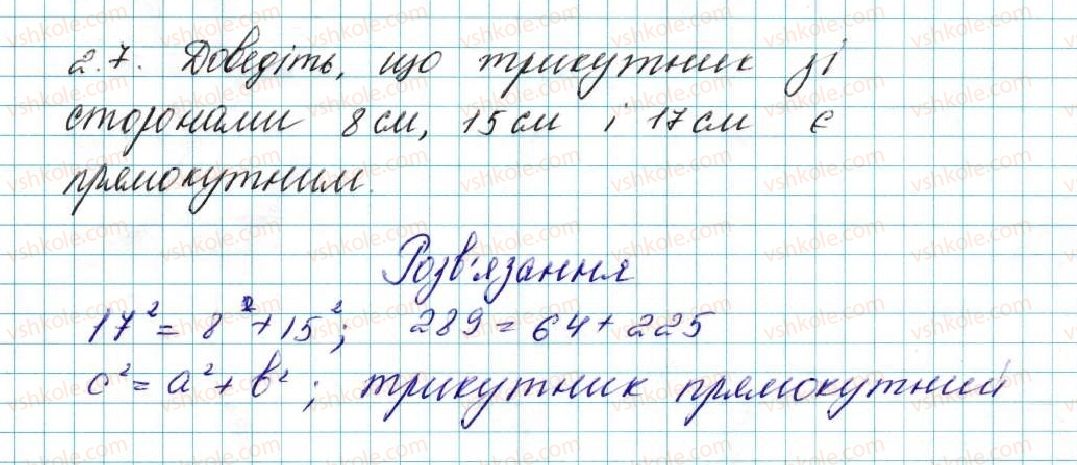 2.7. Доведіть, що трикутник зі
сторонами 8 см, 15 см і 17 см є
прямокутним.
Розв'язання
17² = 8² + 15²; 289 = 64 + 225
c² = a² + b²; трикутник прямокутний